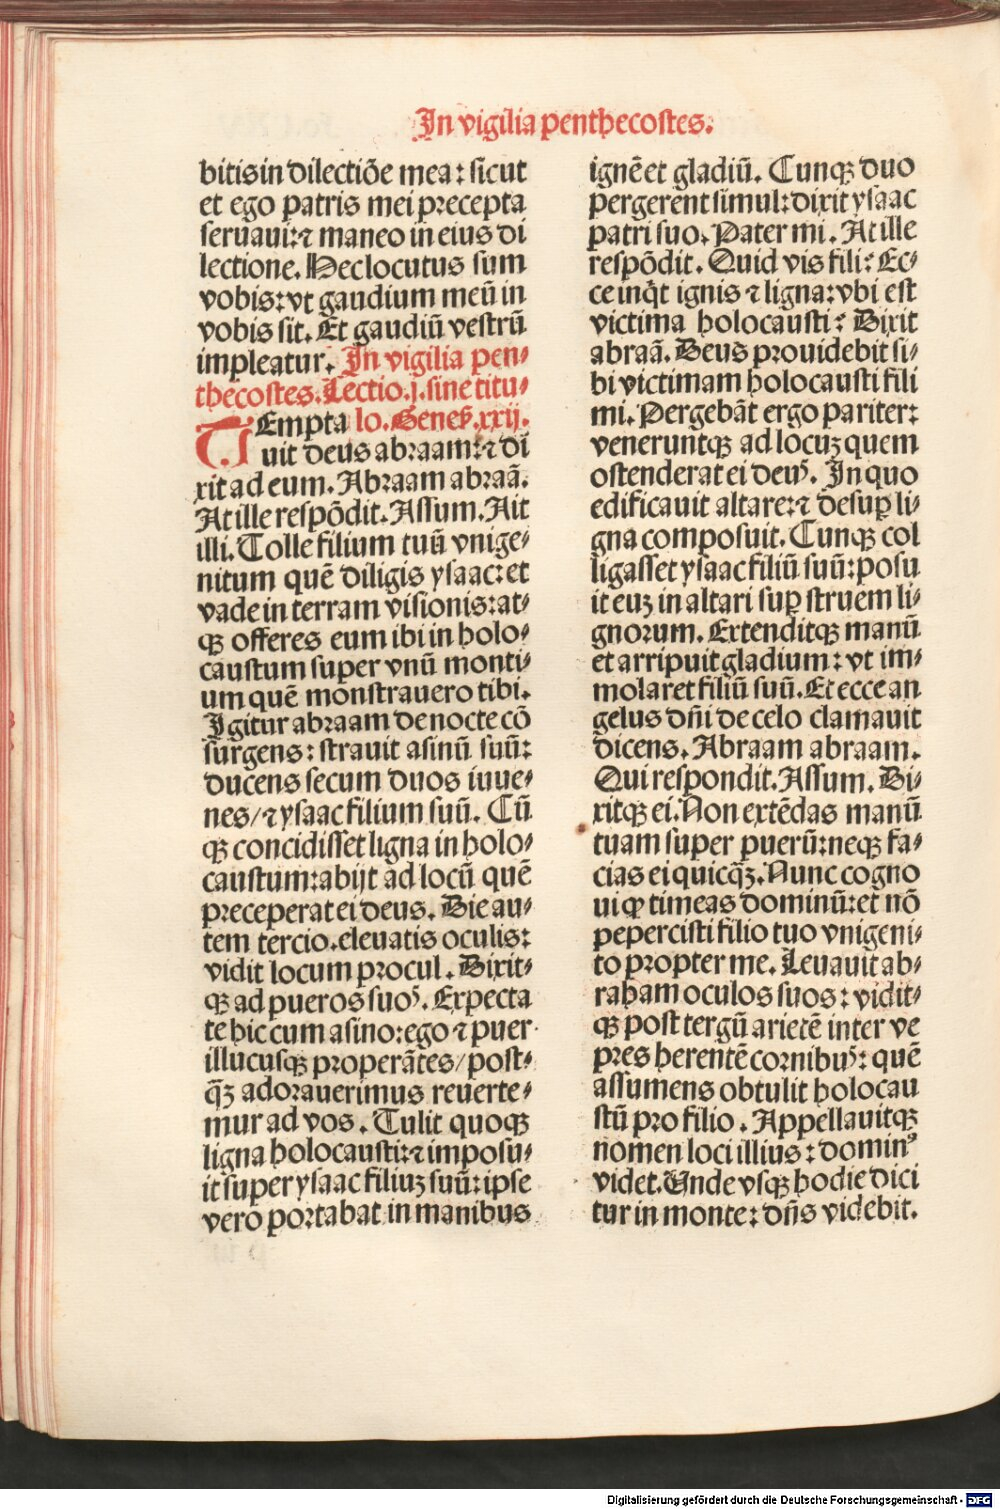 In vigilia penthecostes.
bitis in dilectiõe mea: sicut
et ego patris mei precepta
seruaui: ⁊ maneo in eius di
lectione. Hec locutus sum
vobis: vt gaudium meũ in
vobis sit. Et gaudiũ vestrũ
impleatur. In vigilia pen⸗
thecostes. Lectio .j. sine titu⸗
TEmpta lo. Genes̃. xxij.
uit deus abraam: ⁊ di
xit ad eum. Abraam abraã.
At ille respõdit. Assum. Ait
illi. Tolle filium tuũ vnige⸗
nitum quẽ diligis ysaac: et
vade in terram visionis: at⸗
qꝫ offeres eum ibi in holo⸗
caustum super vnũ monti⸗
um quẽ monstrauero tibi.
Igitur abraam de nocte cõ
surgens: strauit asinũ suũ:
ducens secum duos iuue⸗
nes/ ⁊ ysaac filium suũ. Cũ
qꝫ concidisset ligna in holo⸗
caustum: abijt ad locũ quẽ
preceperat ei deus. Die au⸗
tem tercio. eleuatis oculis:
vidit locum procul. Dixit⸗
qꝫ ad pueros suoꝰ. Expecta
te hic cum asino: ego ⁊ puer
illucusqꝫ properãtes/ post⸗
q̃ꝫ adorauerimus reuerte⸗
mur ad vos. Tulit quoqꝫ
ligna holocausti: ⁊ imposu⸗
it super ysaac filiuꝫ suũ: ipse
vero portabat in manibus
ignẽ et gladiũ. Cunqꝫ duo
pergerent simul: dixit ysaac
patri suo. Pater mi. At ille
respõdit. Quid vis fili? Ec⸗
ce inq̃t ignis ⁊ ligna: vbi est
victima holocausti? Dixit
abraã. Deus prouidebit si⸗
bi victimam holocausti fili
mi. Pergebãt ergo pariter:
veneruntqꝫ ad locuꝫ quem
ostenderat ei deuꝰ. In quo
edificauit altare: ⁊ desuꝑ li⸗
gna composuit. Cunqꝫ col
ligasset ysaac filiũ suũ: posu
it euꝫ in altari suꝑ struem li⸗
gnorum. Extenditqꝫ manũ
et arripuit gladium: vt im⸗
molaret filiũ suũ. Et ecce an
gelus dñi de celo clamauit
dicens. Abraam abraam.
Qui respondit. Assum. Di⸗
xitqꝫ ei. Non extẽdas manũ
tuam super puerũ: neqꝫ fa⸗
cias ei quicq̃ꝫ. Nunc cogno
ui ꝙ timeas dominũ: et nõ
pepercisti filio tuo vnigeni⸗
to propter me. Leuauit ab⸗
raham oculos suos: vidit⸗
qꝫ post tergũ arietẽ inter ve
pres herentẽ cornibuꝰ: quẽ
assumens obtulit holocau
stũ pro filio. Appellauitqꝫ
nomen loci illius: dominꝰ
videt. Unde vsqꝫ hodie dici
tur in monte: dñs videbit.
Digitalisierung gefördert durch die Deutsche Forschungsgemeinschaft - DFG